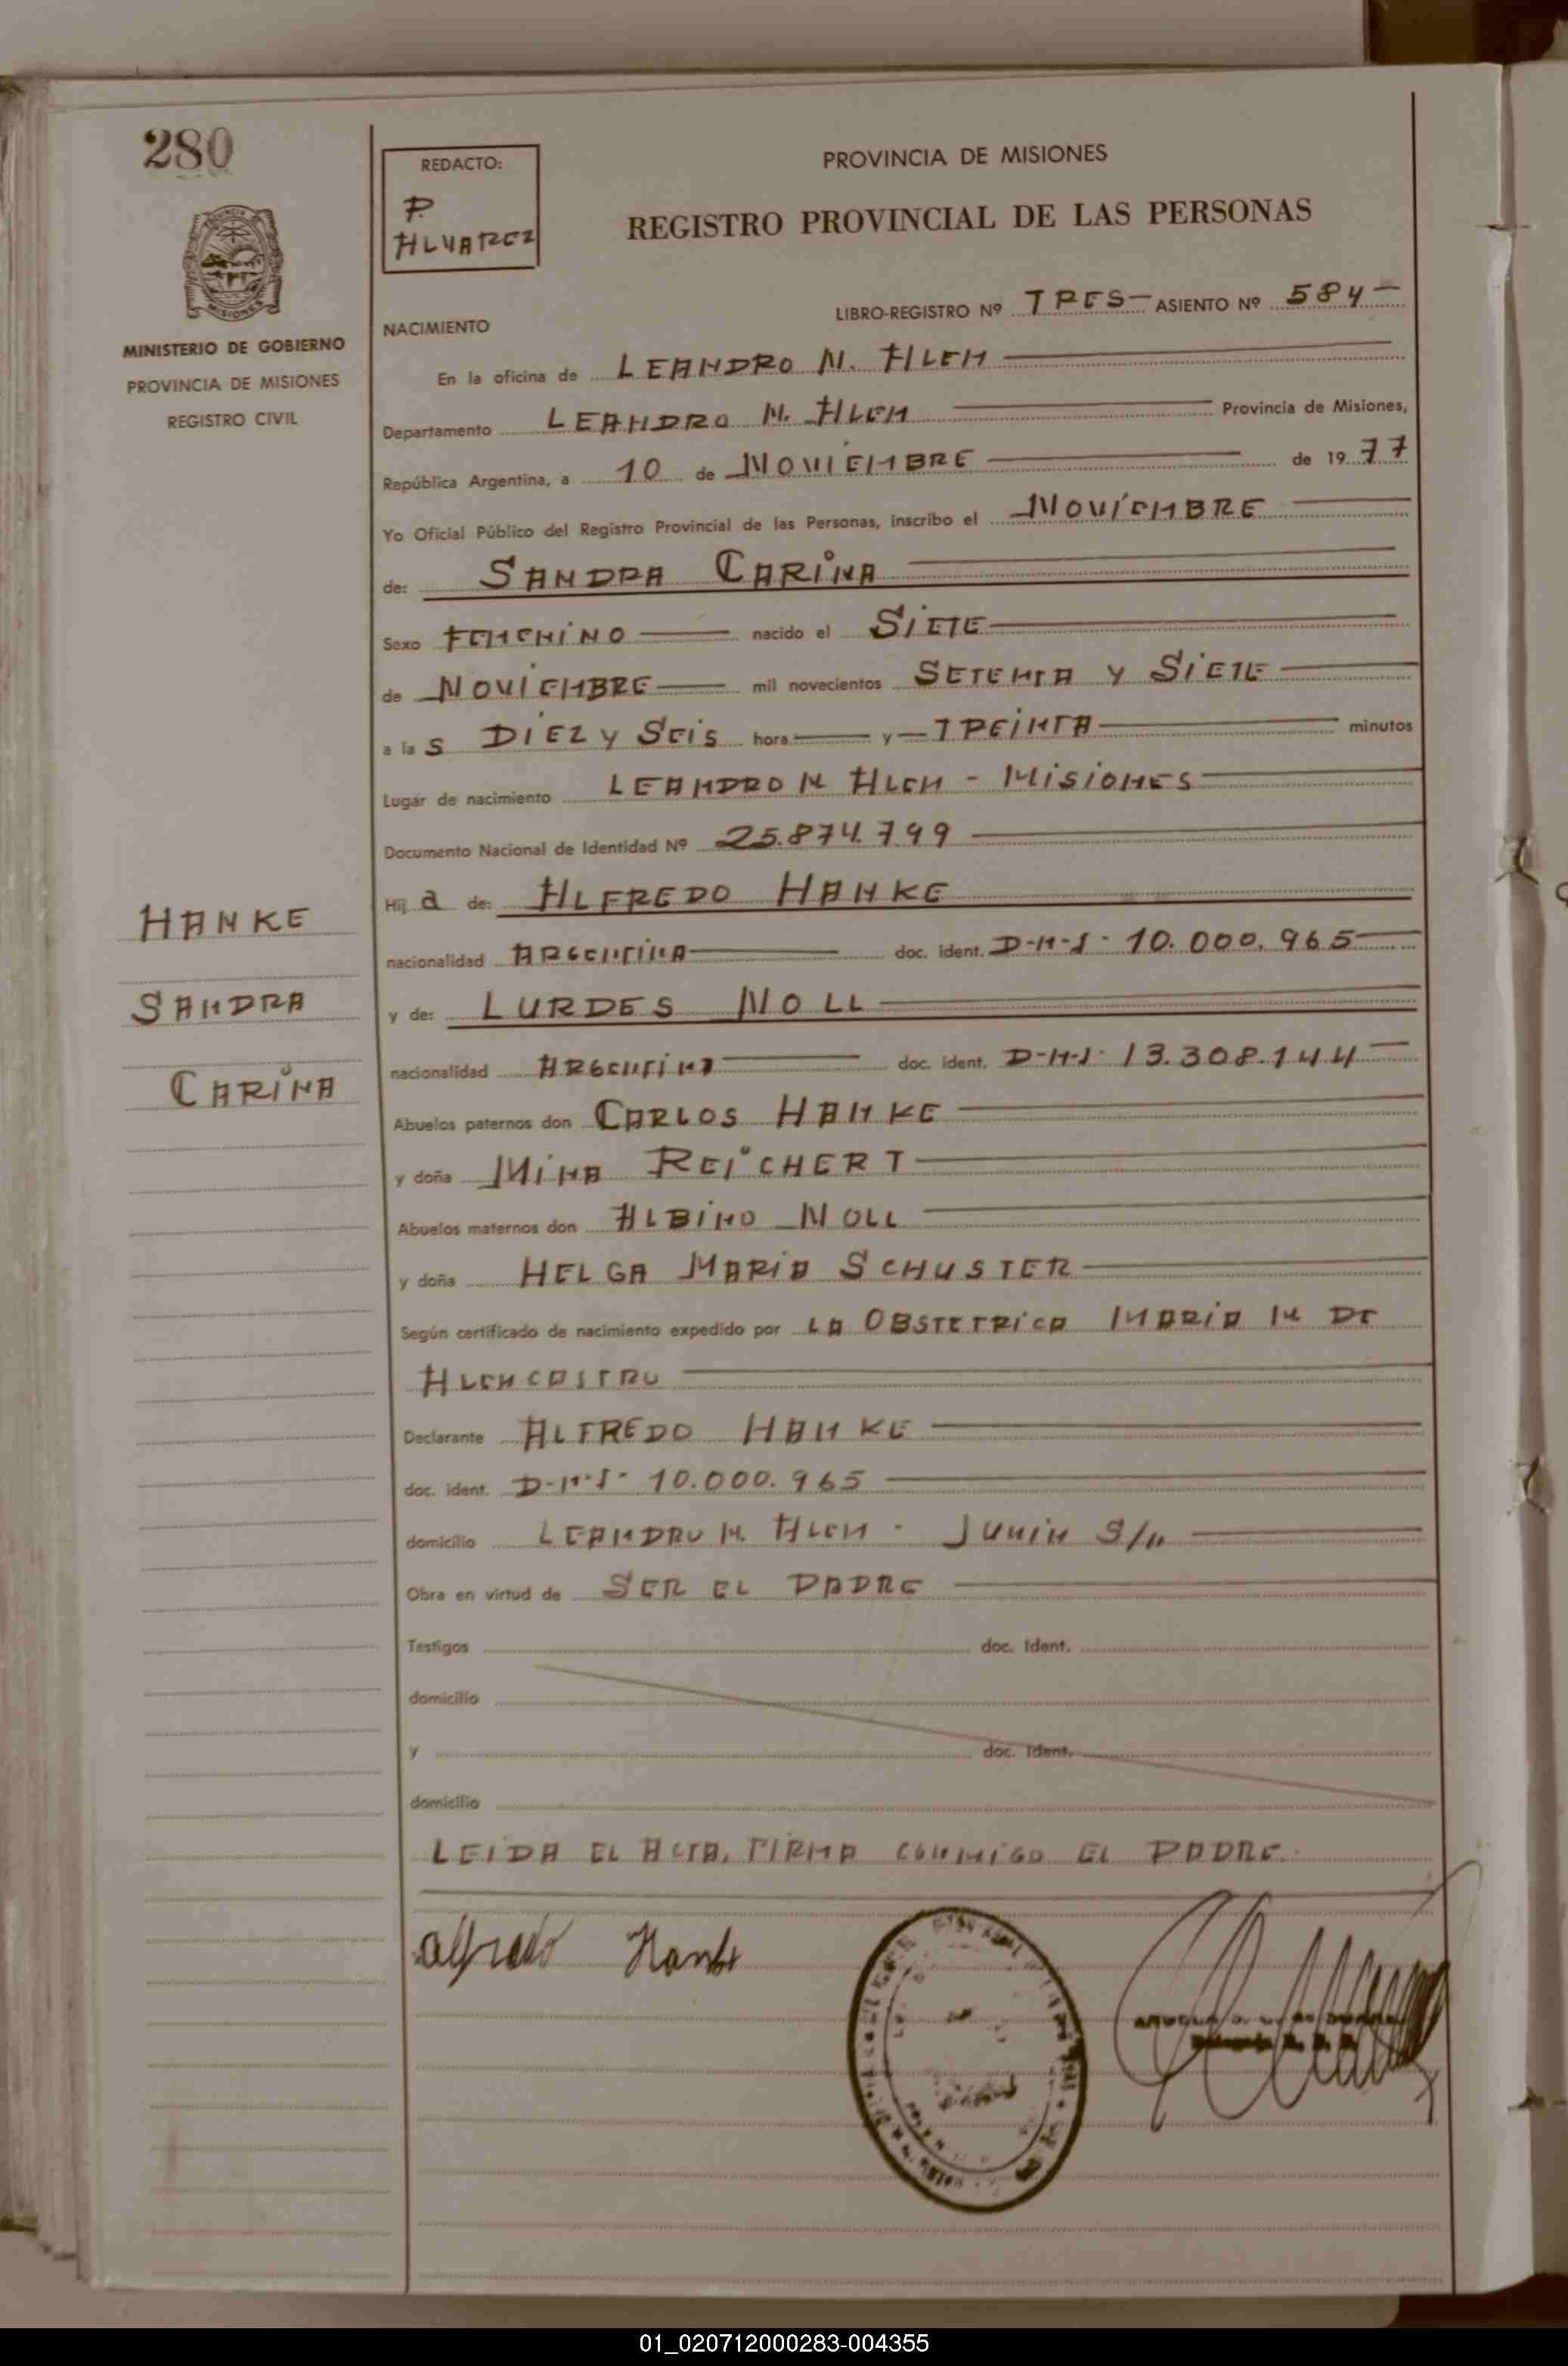 280
REDACTO:
P.
ALVAREZ
PROVINCIA DE MISIONES
REGISTRO PROVINCIAL DE LAS PERSONAS
MISIONES
MINISTERIO DE GOBIERNO
PROVINCIA DE MISIONES
REGISTRO CIVIL
LIBRO-REGISTRO Nº TRES- ASIENTO Nº 584-
NACIMIENTO
En la oficina de LEANDRO N. ALEM
Departamento LEANDRO N. ALEM Provincia de Misiones,
República Argentina, a 10 de NOVIEMBRE de 1977
Yo Oficial Público del Registro Provincial de las Personas, inscribo el NOVIEMBRE
de: SANDRA CARINA
Sexo FEMENINO nacido el SIETE
de NOVIEMBRE mil novecientos SETENTA Y SIETE
a las DIEZ Y SEIS hora y TREINTA minutos
Lugar de nacimiento LEANDRO N ALEM - MISIONES
Documento Nacional de Identidad Nº 25.874.799
Hija de: ALFREDO HANKE
nacionalidad ARGENTINA doc. ident. D-N-I- 10.000.965
y de: LURDES NOLL
nacionalidad ARGENTINA doc. ident. D-N-I- 13.308.144
Abuelos paternos don CARLOS HANKE
y doña MINA REICHERT
Abuelos maternos don ALBINO NOLL
y doña HELGA MARIA SCHUSTER
Según certificado de nacimiento expedido por LA OBSTETRICA MARIA M DE
ALENCASTRO
Declarante ALFREDO HANKE
doc. ident. D-N-I- 10.000.965
domicilio LEANDRO N. ALEM - JUNIN S/N
Obra en virtud de SER EL PADRE
Testigos doc. Ident.
domicilio
y doc. Ident.
domicilio
LEIDA EL ACTA, FIRMA CONMIGO EL PADRE.
HANKE
SANDRA
CARINA
alfredo Hanke
01_020712000283-004355